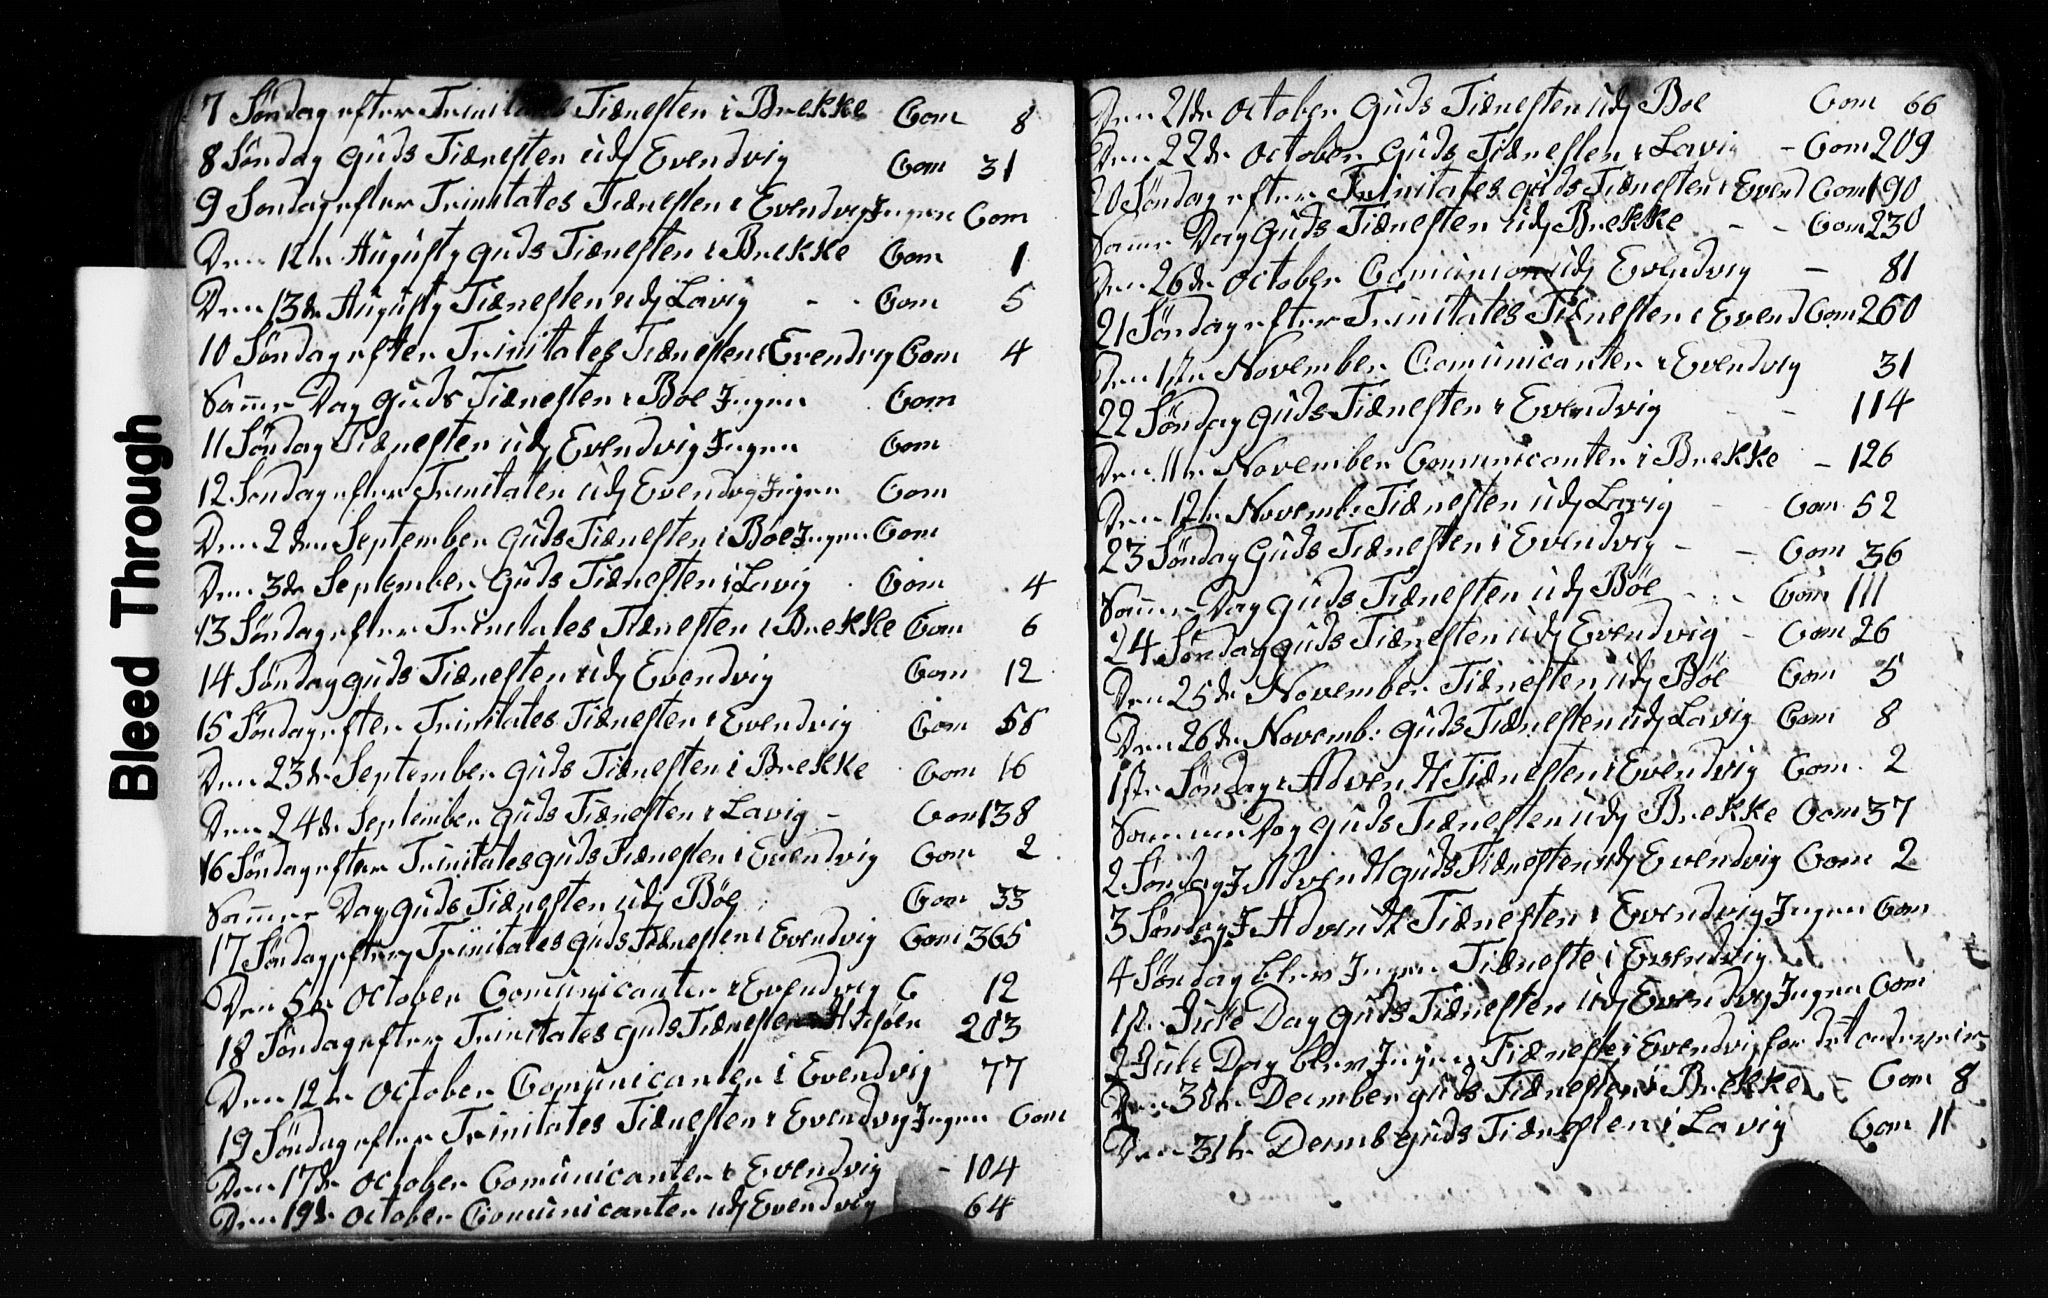 7 Søndag efter Trinitates Tiænesten i Brekke Com 8
8 Søndag Guds Tiænesten udj Evendvig Com 31
9 Søndag efter Trinitates Tiænesten i Evendvig Ingen Com
Den 12te Augusty Guds Tiænesten i Brekke Com 1
Den 13de Augusty Tiænesten udj Lavig - - Com 5
10 Søndag efter Trinitates Tiænesten i Evendvig Com 4
Samme Dag Guds Tiænesten i Boe Ingen Com
11 Søndag Tiænesten udj Evendvig Ingen Com
12 Søndag efter Trinitaten udj Evendvig Ingen Com
Den 2den September Guds Tiænesten i Böe Ingen Com
Den 3de September Guds Tiænesten i Lavig Com 4
13 Søndag efter Trinitates Tiænesten i Brekke Com 6
14 Søndag Guds Tiænesten udj Evendvig Com 12
15 Søndag efter Trinitates Tiænesten i Evendvig Com 55
Den 23de September Guds Tiænesten i Brekke Com 16
Den 24de September Guds Tiænesten i Lavig - Com 138
16 Søndag efter Trinitates Guds Tiænesten i Evendvig Com 2
Samme Dag Guds Tiænesten udj Böe Com 33
17 Søndag efter Trinitates Guds Tiænesten i Evendvig Com 365
Den 5te October Comunicanter i Evendvig C 12
18 Søndag efter Trinitates Guds Tiænesten 203
Den 12te October Comunicanter i Evendvig 77
19 Søndag efter Trinitates Tiænesten i Evendvig Ingen Com
Den 17de October Comunicanter i Evendvig - 104
Den 19de October Comunicanter udj Evendvig 64
Den 21de October Guds Tiænesten udj Boe Com 66
Den 22de October Guds Tiænesten i Lavig - Com 209
20 Søndag efter Trinitates Guds Tiænesten i Evend Com 190
Samme Dag Guds Tiænesten udj Brekke - - Com 230
Den 26de October Comunion udj Evendvig - 81
21 Søndag efter Trinitates Tiænesten i Evend Com 260
Den 1ste November Comunicanter i Evendvig 31
22 Søndag Guds Tiænesten i Evendvig - - 114
Den 11te November Comunicanter i Brekke - 126
Den 12te Novemb: Tiænesten udj Lavig - Com 52
23 Søndag Guds Tiænesten i Evendvig - - Com 36
Samme Dag Guds Tiænesten udj Böe - - Com 111
24 Søndag Guds Tiænesten udj Evendvig - Com 26
Den 25de November Tiænesten udj Böe Com 5
Den 26de Novemb: Guds Tiænesten udj Lavig Com 8
1ste Søndag i Advendt Tiænesten i Evendvig Com 2
Sammen Dag Guds Tiænesten udj Brekke Com 37
2 Søndag J Advendt Guds Tiænesten udj Evendvig Com 2
3 Søndag J Advendt Tiænesten i Evendvig Ingen Com
4 Søndag blev Ingen Tiæneste i Evendvig
1ste Jule Dag Guds Tiænesten udj Evendvig Ingen Com
2 Jule Dag blev Ingen Tiæneste i Evendvig for det
Den 30te Decmber Guds Tiænesten i Brekke - Com 8
Den 31te Decmb Guds Tiænesten i Lavig Com 11
Bleed Through